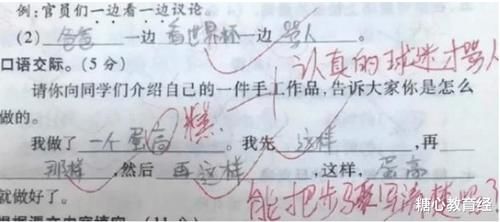 例:官员们一边看一边议论。
(2) 爸爸 一边 看世界杯一边 骂人 。
认真的球迷才骂人
口语交际。(5 分)
请你向同学们介绍自己的一件手工作品,告诉大家你是怎么
做的。
糕!
我做了 一个蛋高 。我先 这样 ,再
那样 ,然后 再这样 ,这样, 蛋高
就做好了。
能把步骤写清楚吧?
糖心教育经